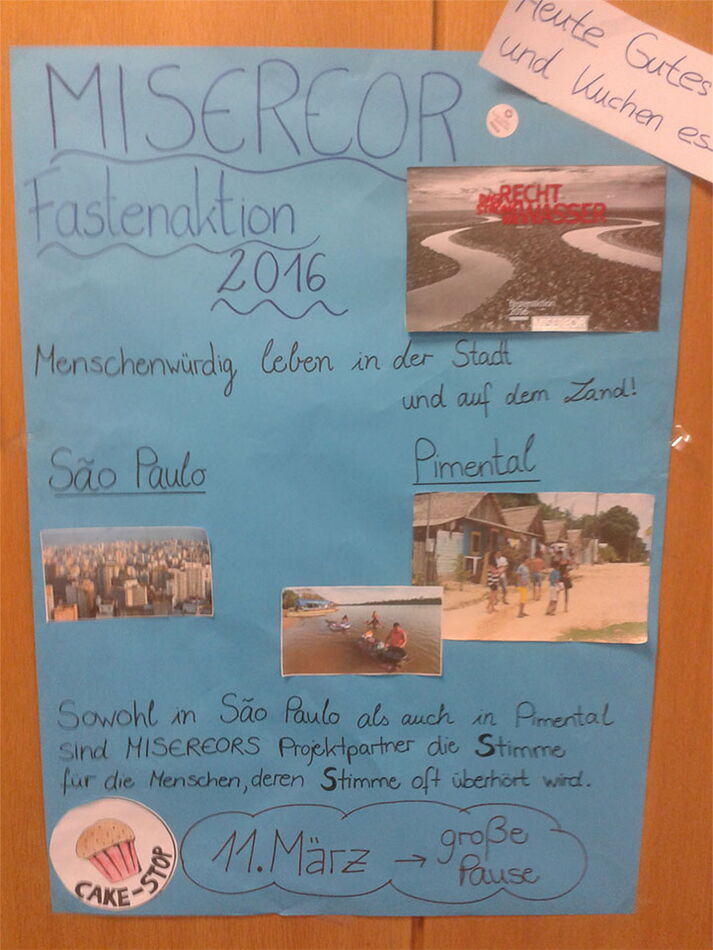 Heute Gutes
und Kuchen es
MISEREOR
Fastenaktion
2016
RECHT
WASSER
Fastenaktion
2016
Menschenwürdig leben in der Stadt
und auf dem Land!
São Paulo
Pimental
Sowohl in São Paulo als auch in Pimental
sind MISEREORS Projektpartner die Stimme
für die Menschen, deren Stimme oft überhört wird.
CAKE-STOP
11. März → große
Pause